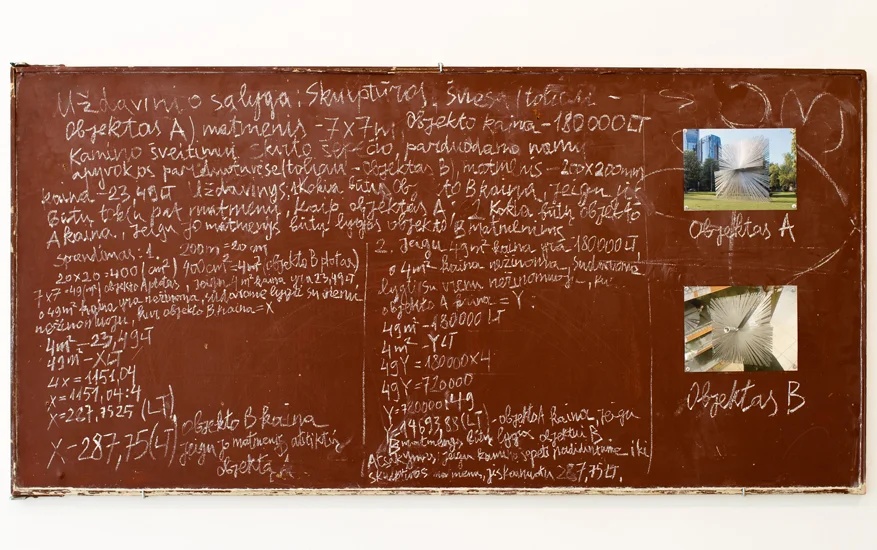 Uždavinio sąlyga. Skulptūros, Šviesa (toliau -
Objektas A) matmenis - 7x7m, Objekto kaina - 180000LT
Kamino šveitimui skirto šepečio parduodamo namų
apyvokos parduotuvėse (toliau - Objektas B), matmenis - 200x200mm
kaina - 23,49LT Uždavinys: Kokia būtų Ob to B kaina, jeigu jis
Būtų tokių pat matmenų, kaip objektas A. 2. Kokia būtų objekto
A kaina, jeigu jo matmenys būtų lygūs objekto B matmenims
Sprendimas: 1. 200m=20cm
20x20=400(cm²) 400cm²=4m² (objekto B plotas)
7x7=49(m²) objekto A plotas, jeigu 4m² kaina yra 23,49LT
o 49m² kaina yra nežinoma, sudarome lygtį su vienu
nežinomuoju, kur objekto B kaina=X
4m²-23,49LT
49m²-XLT
4x=1151,04
x=1151,04:4
x=287,7525 (LT)
X-287,75(LT) objekto B kaina
jeigu jo matmenys atitiktų
objektą A
2. Jeigu 49m² kaina yra 180000LT,
o 4m² kaina nežinoma, sudarome
lygtį su vienu nežinomuoju, kur
objekto A kaina = Y.
49m²-180000 LT
4m²-YLT
49Y=180000x4
49Y=720000
Y=720000:49
Y=14693,83(LT) - objekto A kaina, jeigu
matmenys būtų lygūs objektui B
Atsakymas, jeigu kamino šepetį padidintume iki
skulptūros matmenų, jis kainuotų 287,75LT.
Objektas A
Objektas B